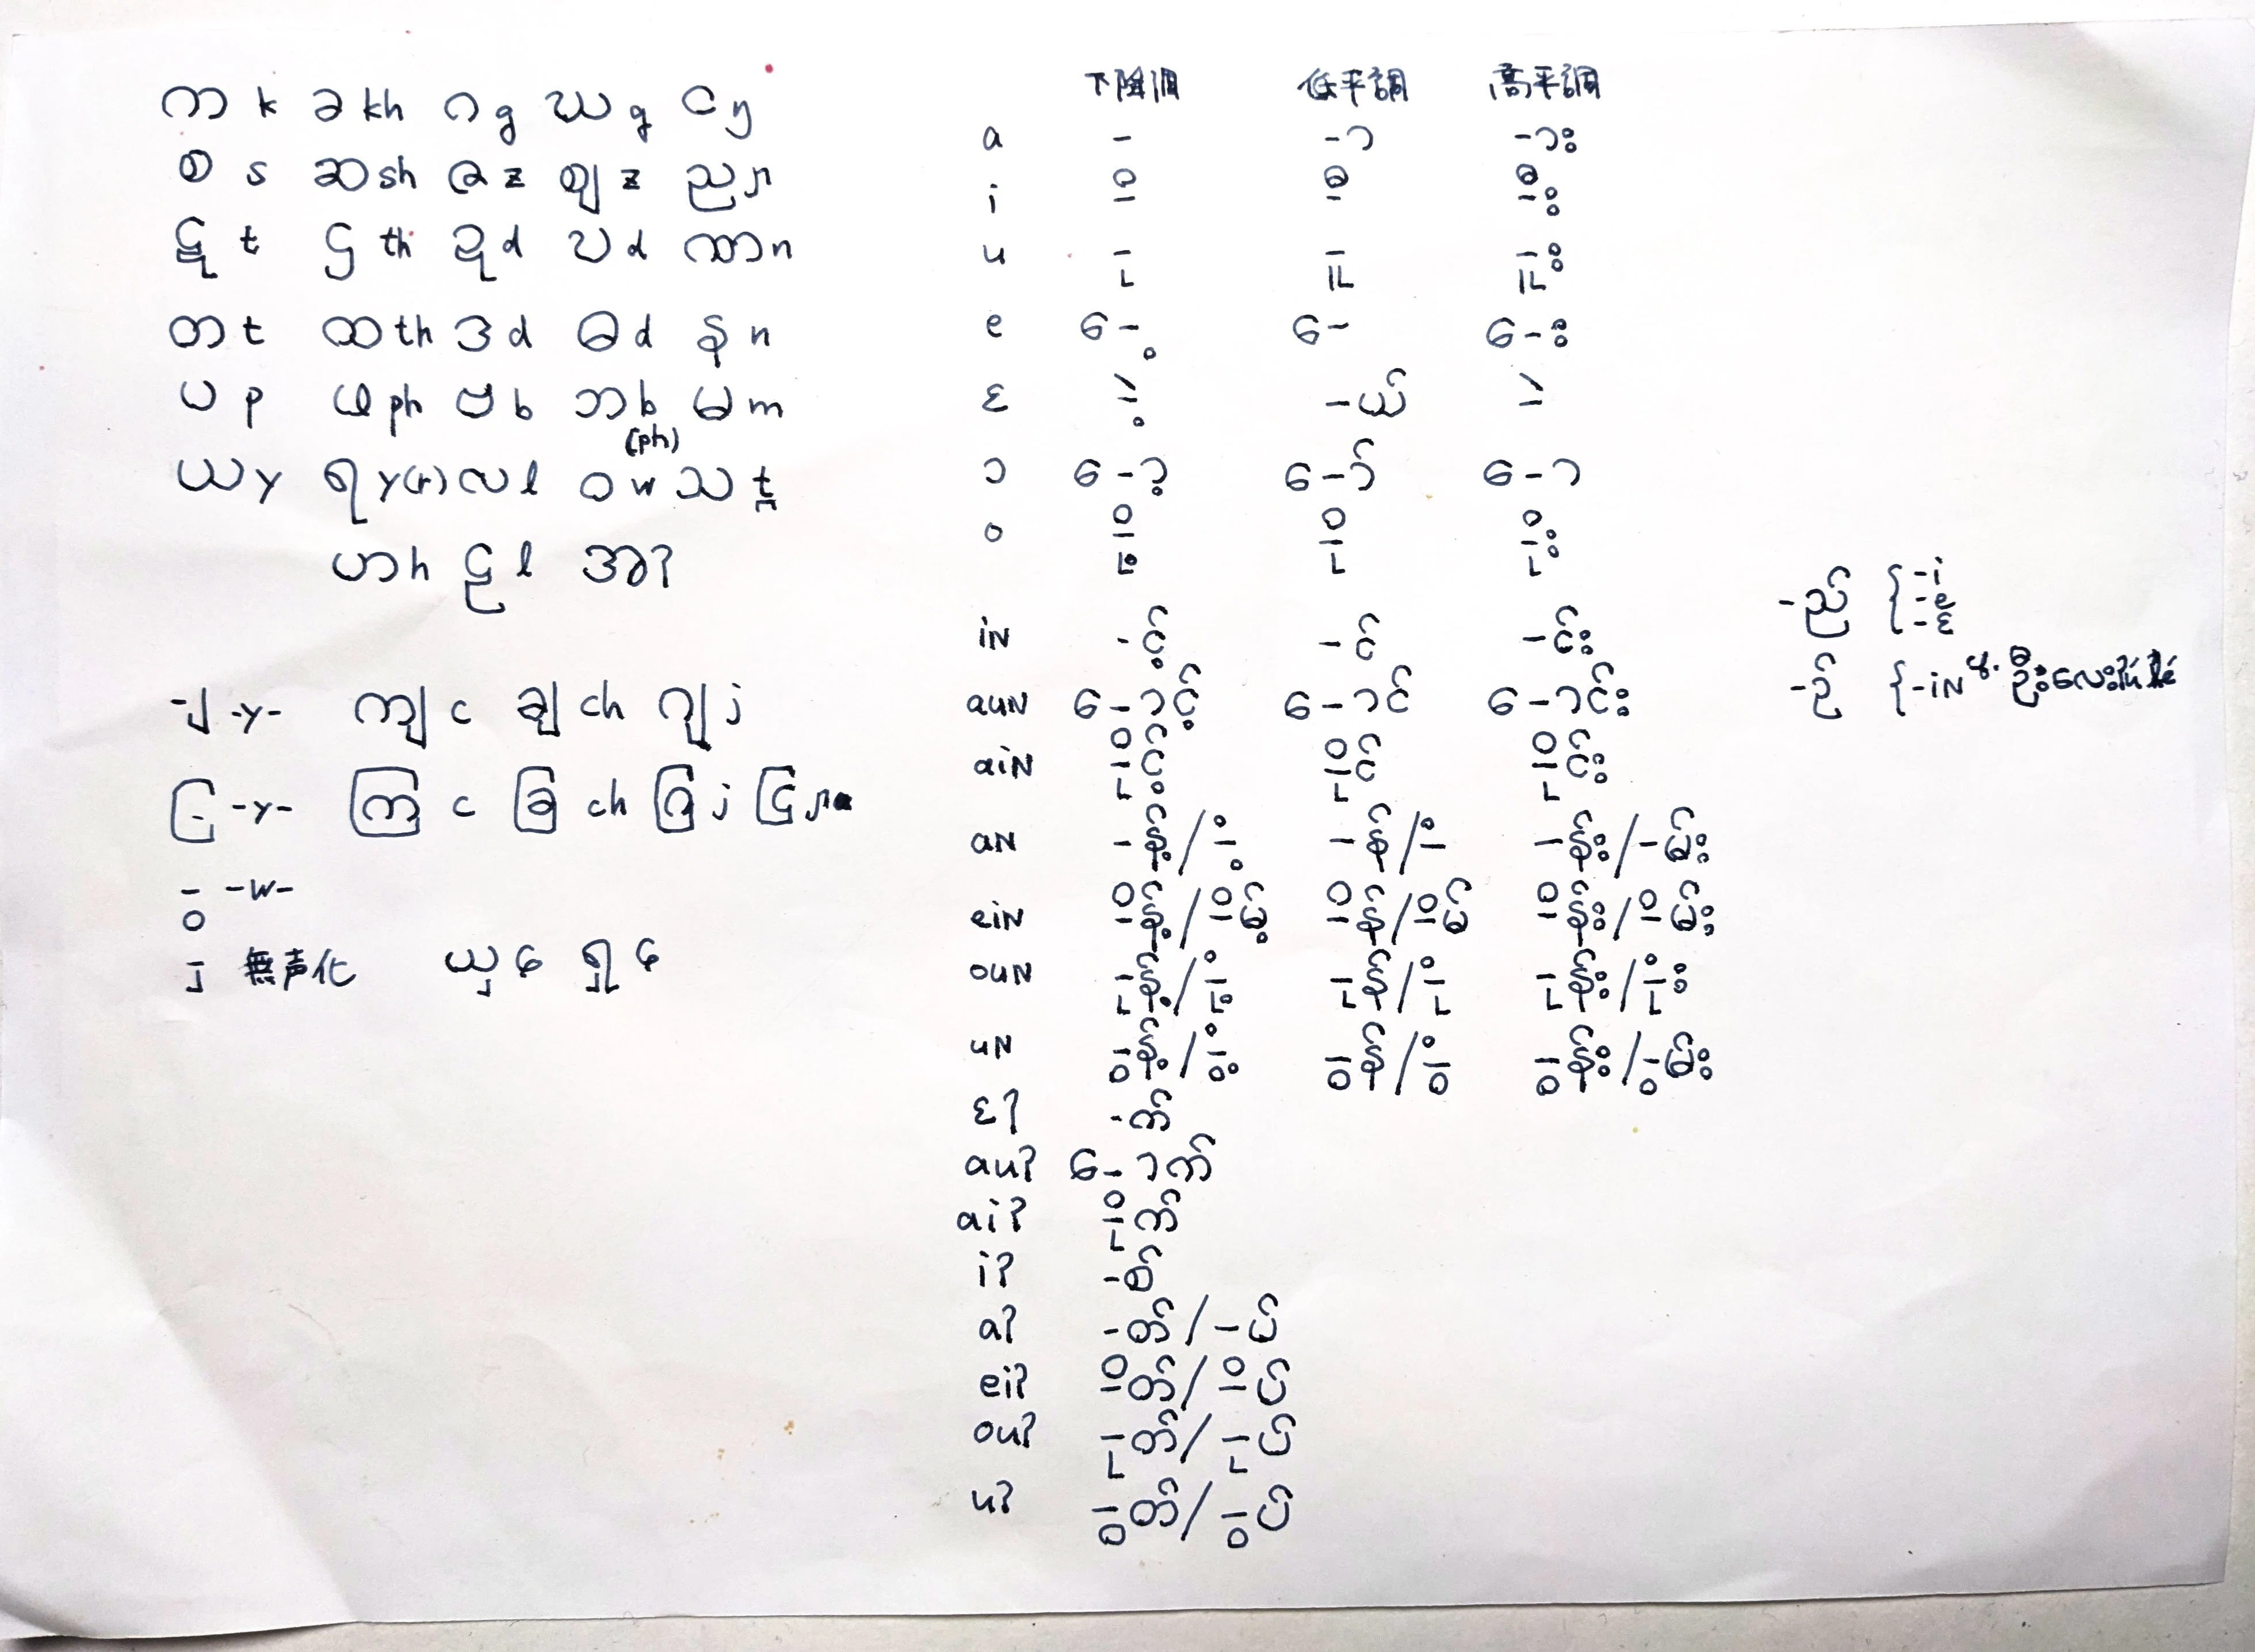 က k ခ kh ဂ g ဃ g င ŋ
စ s ဆ sh ဇ z ဈ z ည ɲ
ဋ t ဌ th ဍ d ဎ d ဏ n
တ t ထ th ဒ d ဓ d န n
ပ p ဖ ph ဗ b ဘ b (ph) မ m
ယ y ရ y(r) လ l ဝ w သ t̪
ဟ h ဠ l အ ʔ
-ျ -y- ကျ c ချ ch ဂျ j
ြ -y- ကြ c ခြ ch ဂြ j ငြ ɲ
-ွ -w-
-ှ 無声化 ယှ ɕ ရှ ɕ
下降調 低平調 高平調
a - -ာ -ား
i -ိ -ီ -ီး
u -ု -ူ -ူး
e ေ-့ ေ- ေ-း
ɛ -ဲ့ -ယ် -ဲ
ɔ ေ-ာ့ ေ-ာ် ေ-ာ
o -ို့ -ို -ိုး
iN -င့် -င် -င်း
auN ေ-ာင့် ေ-ာင် ေ-ာင်း
aiN -ိုင့် -ိုင် -ိုင်း
aN -န့်/-ံ့ -န်/-ံ -န်း/-မ်း
eiN -ိန့်/-ိမ့် -ိန်/-ိမ် -ိန်း/-ိမ်း
ouN -ုန့်/-ုံ့ -ုန်/-ုံ -ုန်း/-ုံး
uN -ွန့်/-ွံ့ -ွန်/-ွံ -ွန်း/-ွမ်း
ɛʔ -က်
auʔ ေ-ာက်
aiʔ -ိုက်
iʔ -စ်
aʔ -တ်/-ပ်
eiʔ -ိတ်/-ိပ်
ouʔ -ုတ်/-ုပ်
uʔ -ွတ်/-ွပ်
-ည် { -i
-e
-ɛ
-ဉ် { -iN